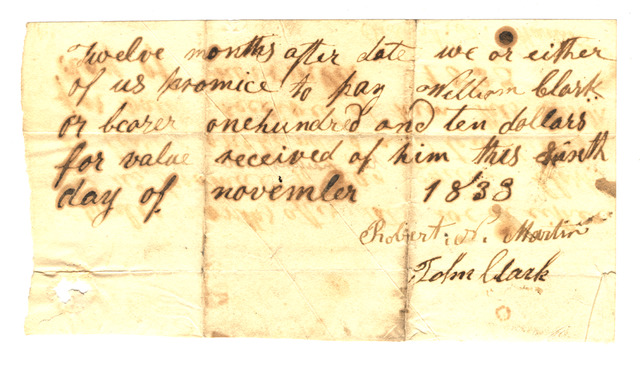 Twelve months after date we or either
of us promice to pay William Clark
or bearer onehundred and ten dollars
for value received of him this
day of november 1833
Robert N. Martin
John Clark